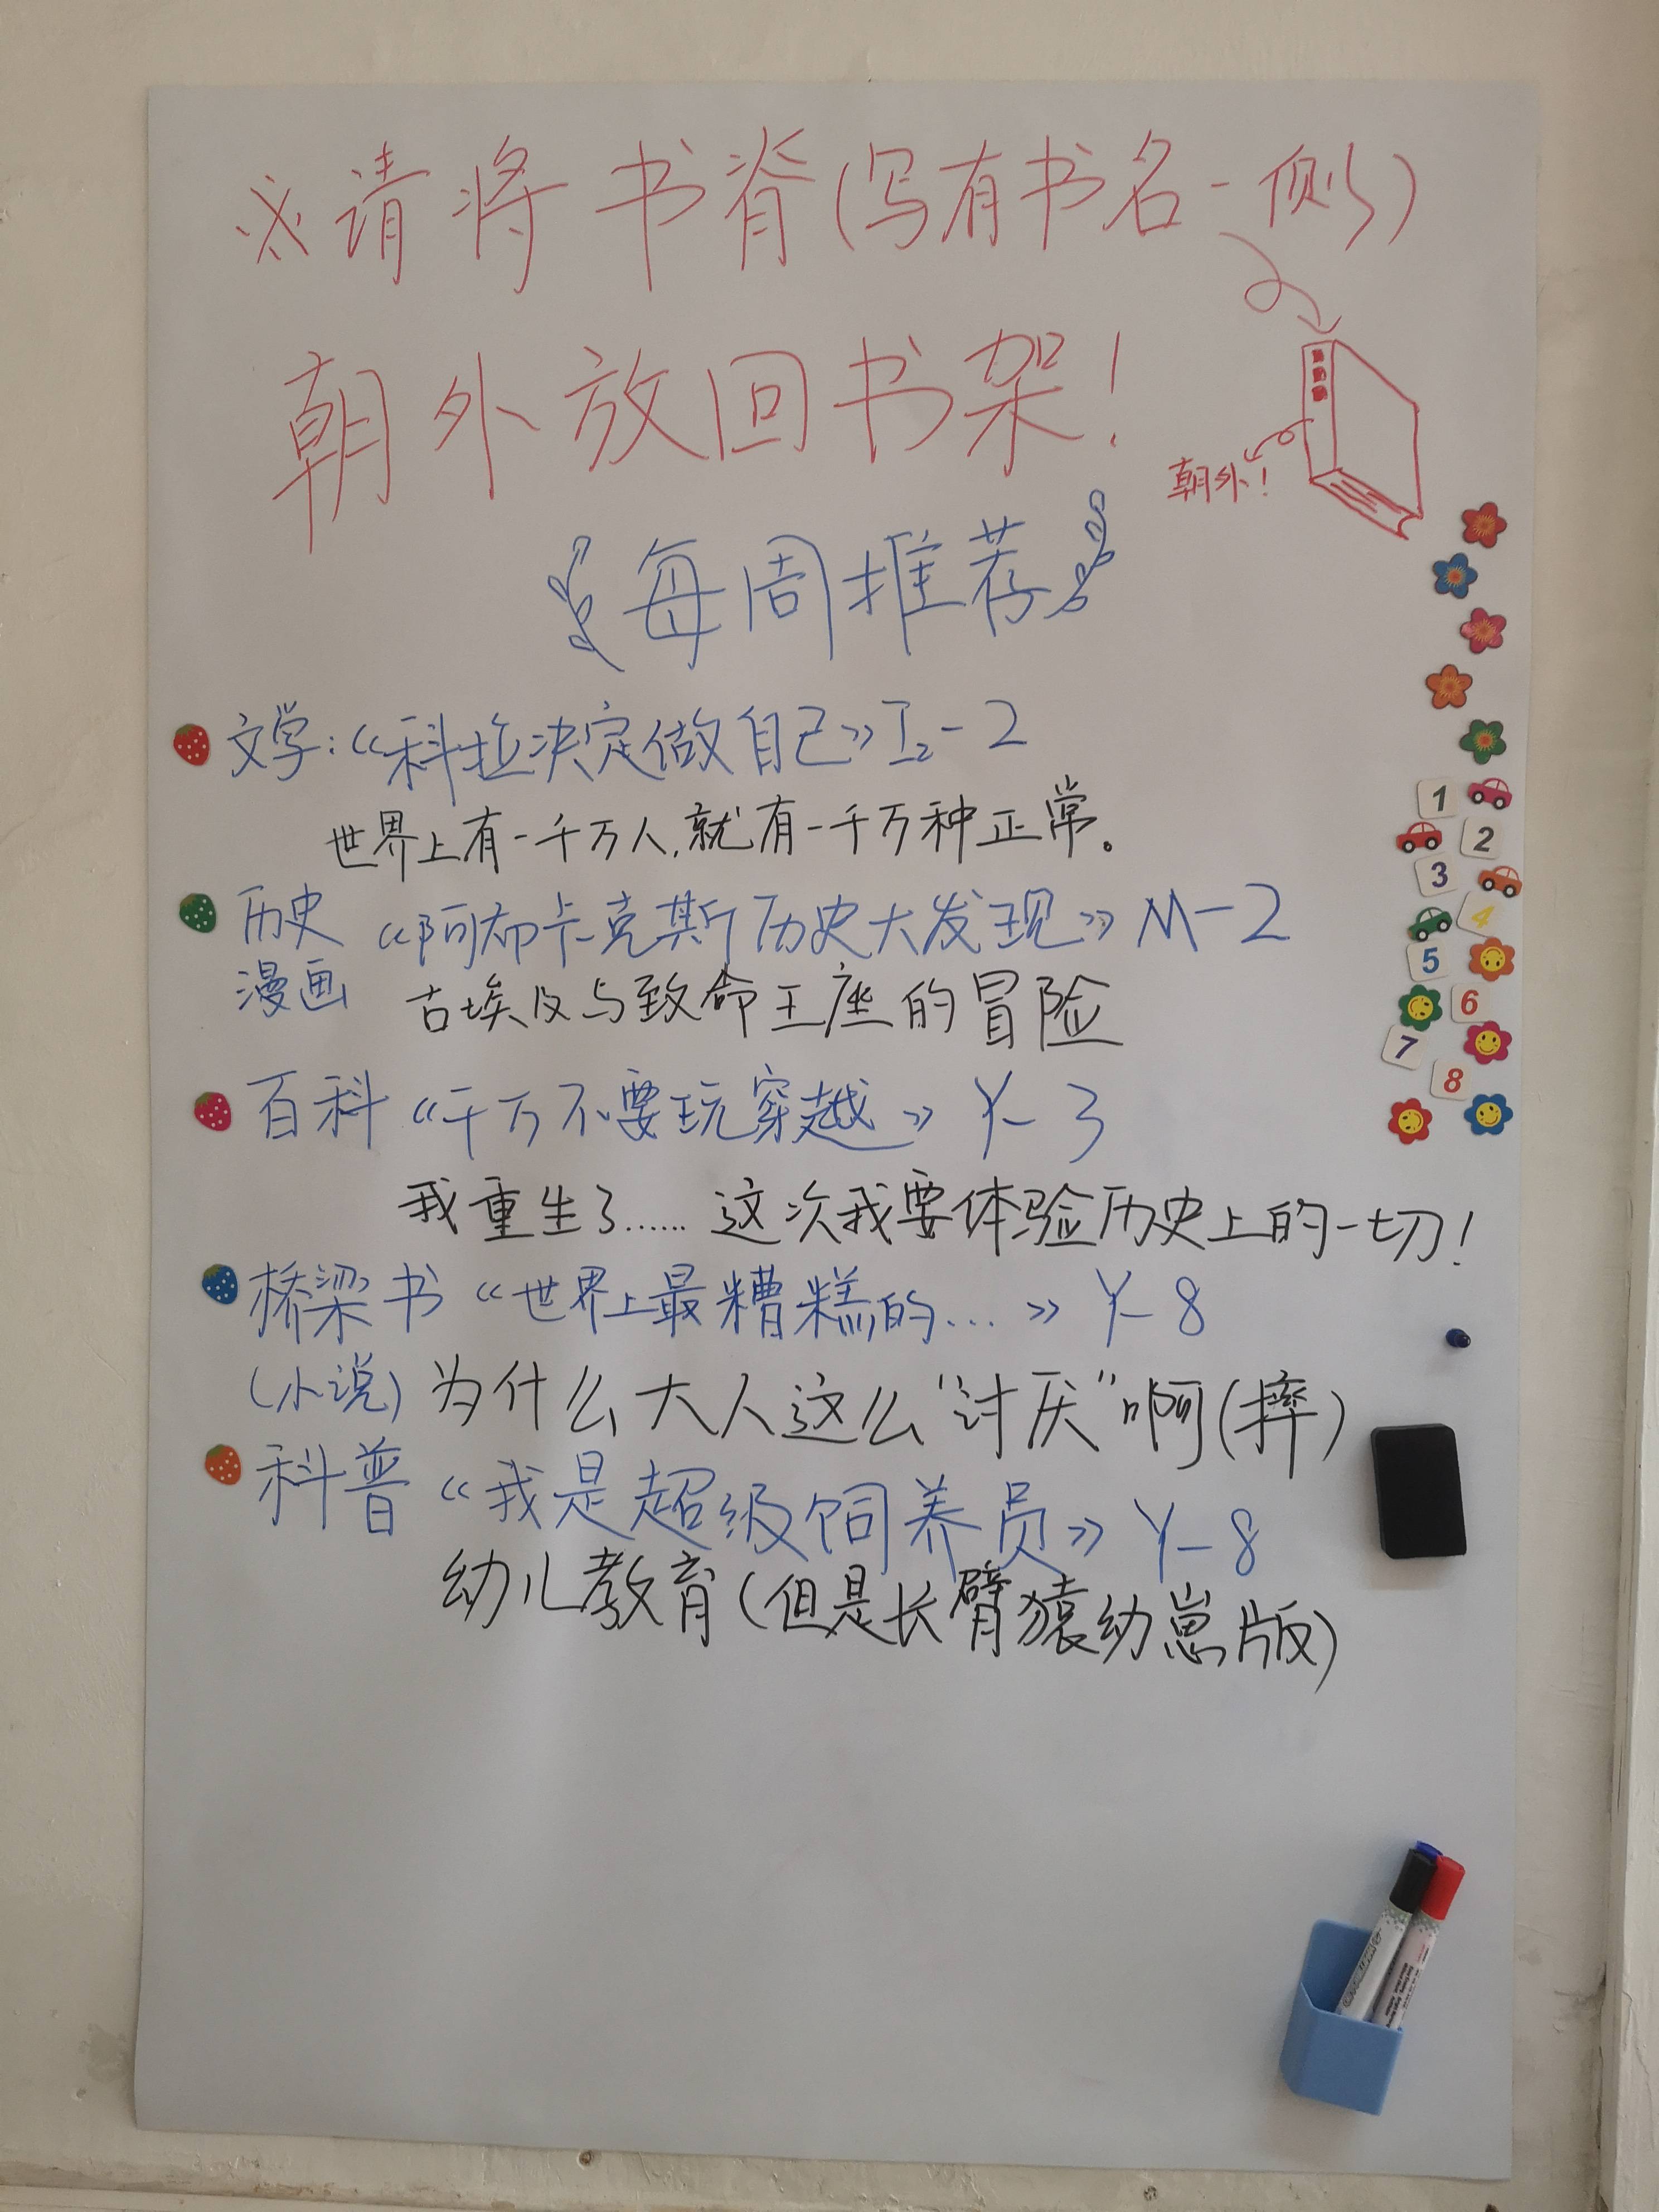 ※请将书脊(写有书名一侧)
朝外放回书架!
朝外!
每周推荐
文学:《科拉决定做自己》I₂-2
世界上有一千万人,就有一千万种正常。
历史漫画《阿布卡克斯历史大发现》M-2
古埃及与致命王座的冒险
百科《千万不要玩穿越》Y-3
我重生了......这次我要体验历史上的一切!
桥梁书《世界上最糟糕的...》Y-8
(小说)为什么大人这么"讨厌"啊(摔)
科普《我是超级饲养员》Y-8
幼儿教育(但是长臂猿幼崽版)
1
2
3
4
5
6
7
8